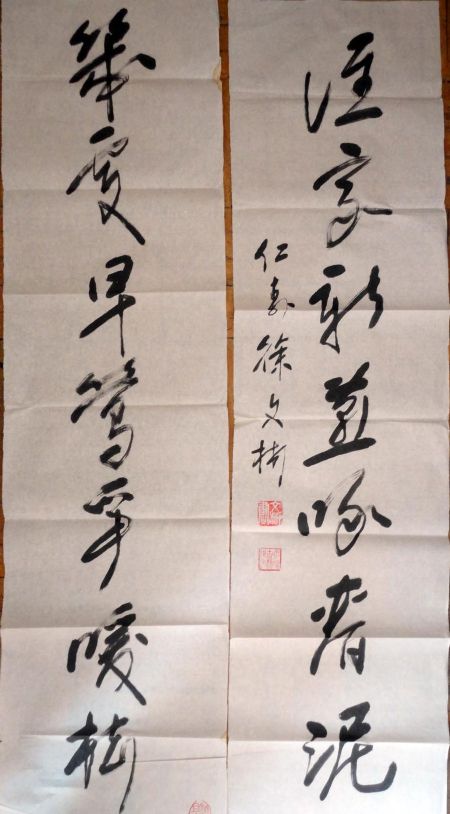 幾處早鶯爭暖樹
誰家新燕啄春泥
仁壽徐文彬